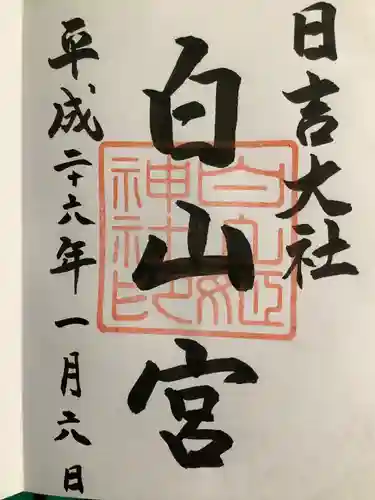 日吉大社
白山宮
平成二十六年一月六日
白山姫神社印